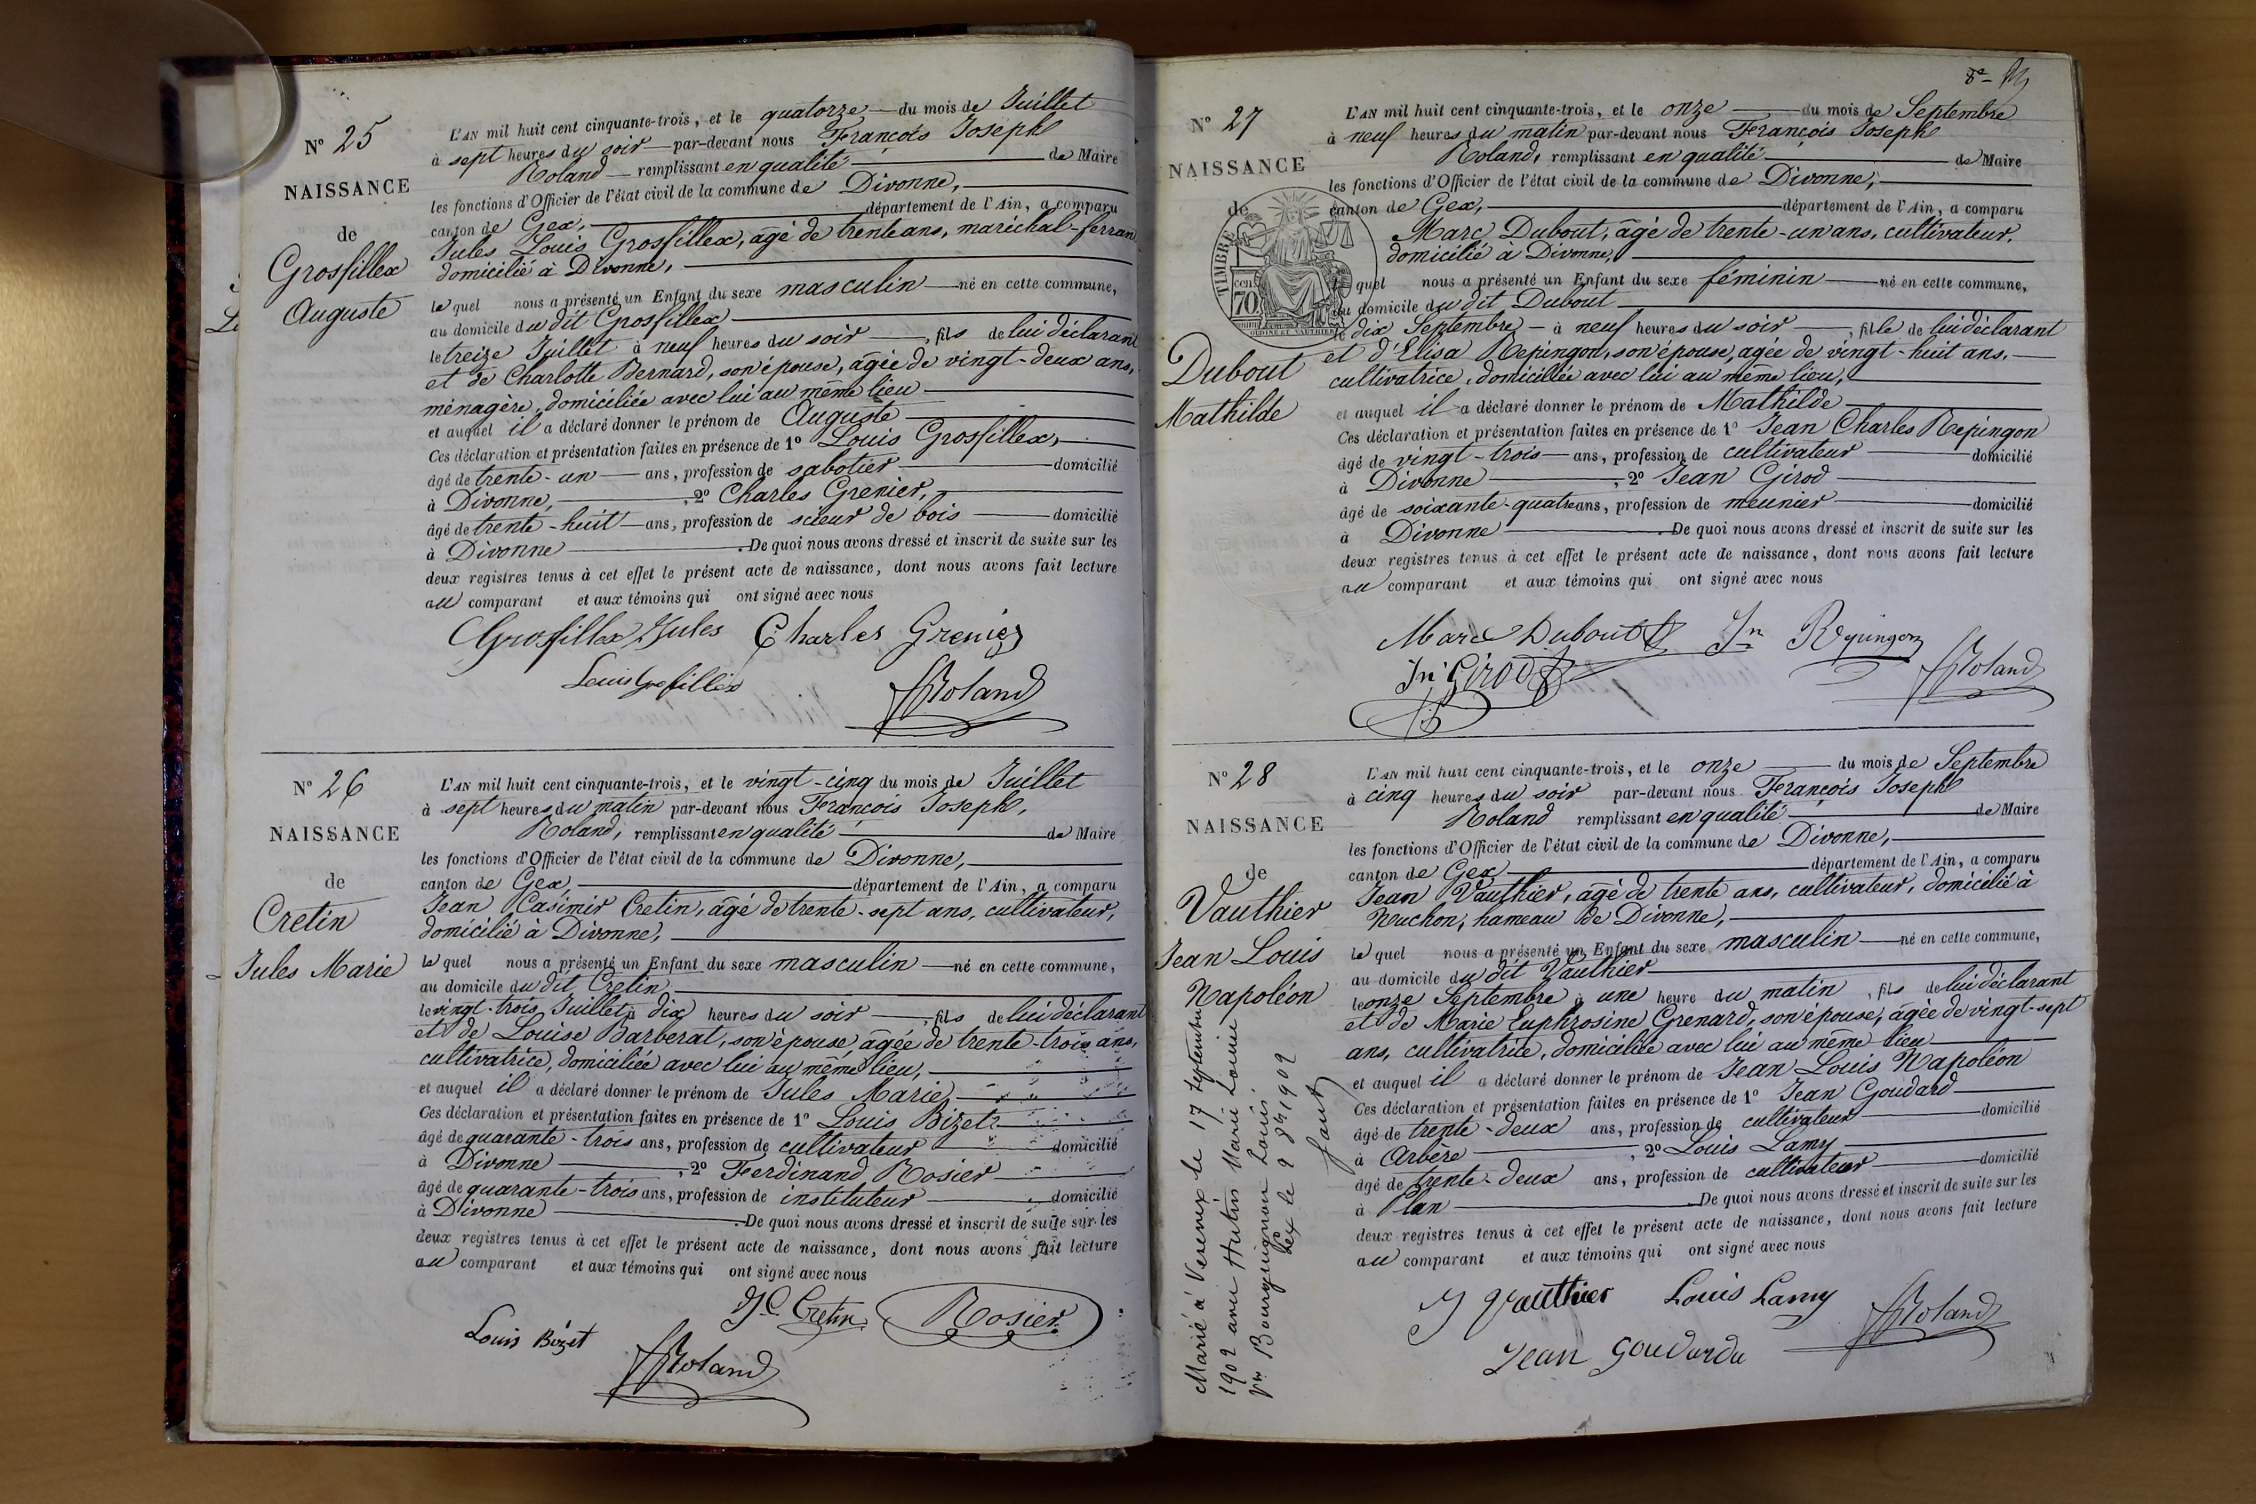 Nº 25
NAISSANCE
de
Grosfillex
Auguste
L'AN mil huit cent cinquante-trois, et le quatorze du mois de Juillet
à sept heures du soir par-devant nous François Joseph
Roland remplissant en qualité de Maire
les fonctions d'Officier de l'état civil de la commune de Divonne,
canton de Gex, département de l'Ain, a comparu
Jules Louis Grosfillex, âgé de trente ans, maréchal-ferran
domicilié à Divonne,
lequel nous a présenté un Enfant du sexe masculin né en cette commune,
au domicile du dit Grosfillex
le treize Juillet à neuf heures du soir, fils de lui déclarant
et de Charlotte Bernard, son épouse, agée de vingt-deux ans,
ménagère, domiciliée avec lui au même lieu
et auquel il a déclaré donner le prénom de Auguste
Ces déclaration et présentation faites en présence de 1º Louis Grosfillex,
âgé de trente-un ans, profession de sabotier domicilié
à Divonne, , 2º Charles Grenier,
âgé de trente-huit ans, profession de scieur de bois domicilié
à Divonne . De quoi nous avons dressé et inscrit de suite sur les
deux registres tenus à cet effet le présent acte de naissance, dont nous avons fait lecture
au comparant et aux témoins qui ont signé avec nous
Grosfillex Jules Charles Grenier
Louis Grosfillex
Roland
Nº 26
NAISSANCE
de
Cretin
Jules Marie
L'AN mil huit cent cinquante-trois, et le vingt-cinq du mois de Juillet
à sept heures du matin par-devant nous François Joseph,
Roland, remplissant en qualité de Maire
les fonctions d'Officier de l'état civil de la commune de Divonne,
canton de Gex, département de l'Ain, a comparu
Jean Casimir Cretin, âgé de trente-sept ans, cultivateur,
domicilié à Divonne,
lequel nous a présenté un Enfant du sexe masculin né en cette commune,
au domicile du dit Cretin
le vingt-trois Juillet à dix heures du soir, fils de lui déclarant
et de Louise Barberat, son épouse agée de trente-trois ans,
cultivatrice, domiciliée avec lui au même lieu,
et auquel il a déclaré donner le prénom de Jules Marie
Ces déclaration et présentation faites en présence de 1º Louis Bizet
âgé de quarante-trois ans, profession de cultivateur domicilié
à Divonne , 2º Ferdinand Rosier
âgé de quarante-trois ans, profession de instituteur domicilié
à Divonne . De quoi nous avons dressé et inscrit de suite sur les
deux registres tenus à cet effet le présent acte de naissance, dont nous avons fait lecture
au comparant et aux témoins qui ont signé avec nous
J C Cretin Rosier
Louis Bizet
Roland
8e
Nº 27
NAISSANCE
de
TIMBRE
70 cen
Dubout
Mathilde
L'AN mil huit cent cinquante-trois, et le onze du mois de Septembre
à neuf heures du matin par-devant nous François Joseph
Roland, remplissant en qualité de Maire
les fonctions d'Officier de l'état civil de la commune de Divonne,
canton de Gex, département de l'Ain, a comparu
Marc Dubout, âgé de trente-un ans, cultivateur,
domicilié à Divonne,
lequel nous a présenté un Enfant du sexe féminin né en cette commune,
au domicile du dit Dubout
le dix Septembre à neuf heures du soir, fille de lui déclarant
et d'Elisa Repingon, son épouse, agée de vingt-huit ans,
cultivatrice, domiciliée avec lui au même lieu,
et auquel il a déclaré donner le prénom de Mathilde
Ces déclaration et présentation faites en présence de 1º Jean Charles Repingon
âgé de vingt-trois ans, profession de cultivateur domicilié
à Divonne , 2º Jean Girod
âgé de soixante-quatre ans, profession de meunier domicilié
à Divonne . De quoi nous avons dressé et inscrit de suite sur les
deux registres tenus à cet effet le présent acte de naissance, dont nous avons fait lecture
au comparant et aux témoins qui ont signé avec nous
Marc Dubout Jn Repingon
Jn Girod Roland
Nº 28
NAISSANCE
de
Vauthier
Jean Louis
Napoléon
Marié à Versoix le 17 septembre
1902 avec Hutin Marie Louise
Vve Bourguignon Louis.
Gex le 2 8bre 1902
L'AN mil huit cent cinquante-trois, et le onze du mois de Septembre
à cinq heures du soir par-devant nous François Joseph
Roland remplissant en qualité de Maire
les fonctions d'Officier de l'état civil de la commune de Divonne,
canton de Gex département de l'Ain, a comparu
Jean Vauthier, âgé de trente ans, cultivateur, domicilié à
Vuchon, hameau de Divonne,
lequel nous a présenté un Enfant du sexe masculin né en cette commune,
au domicile du dit Vauthier
le onze Septembre à une heure du matin, fils de lui déclarant
et de Marie Euphrosine Grenard, son épouse, agée de vingt-sept
ans, cultivatrice, domiciliée avec lui au même lieu
et auquel il a déclaré donner le prénom de Jean Louis Napoléon
Ces déclaration et présentation faites en présence de 1º Jean Goudard
âgé de trente-deux ans, profession de cultivateur domicilié
à Arbère , 2º Louis Lamy
âgé de trente-deux ans, profession de cultivateur domicilié
à Plan . De quoi nous avons dressé et inscrit de suite sur les
deux registres tenus à cet effet le présent acte de naissance, dont nous avons fait lecture
au comparant et aux témoins qui ont signé avec nous
J Vauthier Louis Lamy Roland
Jean Goudard